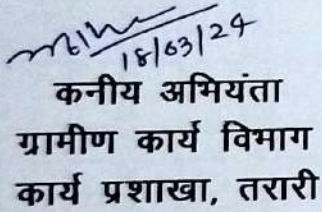 18/03/24
कनीय अभियंता
ग्रामीण कार्य विभाग
कार्य प्रशाखा, तरारी